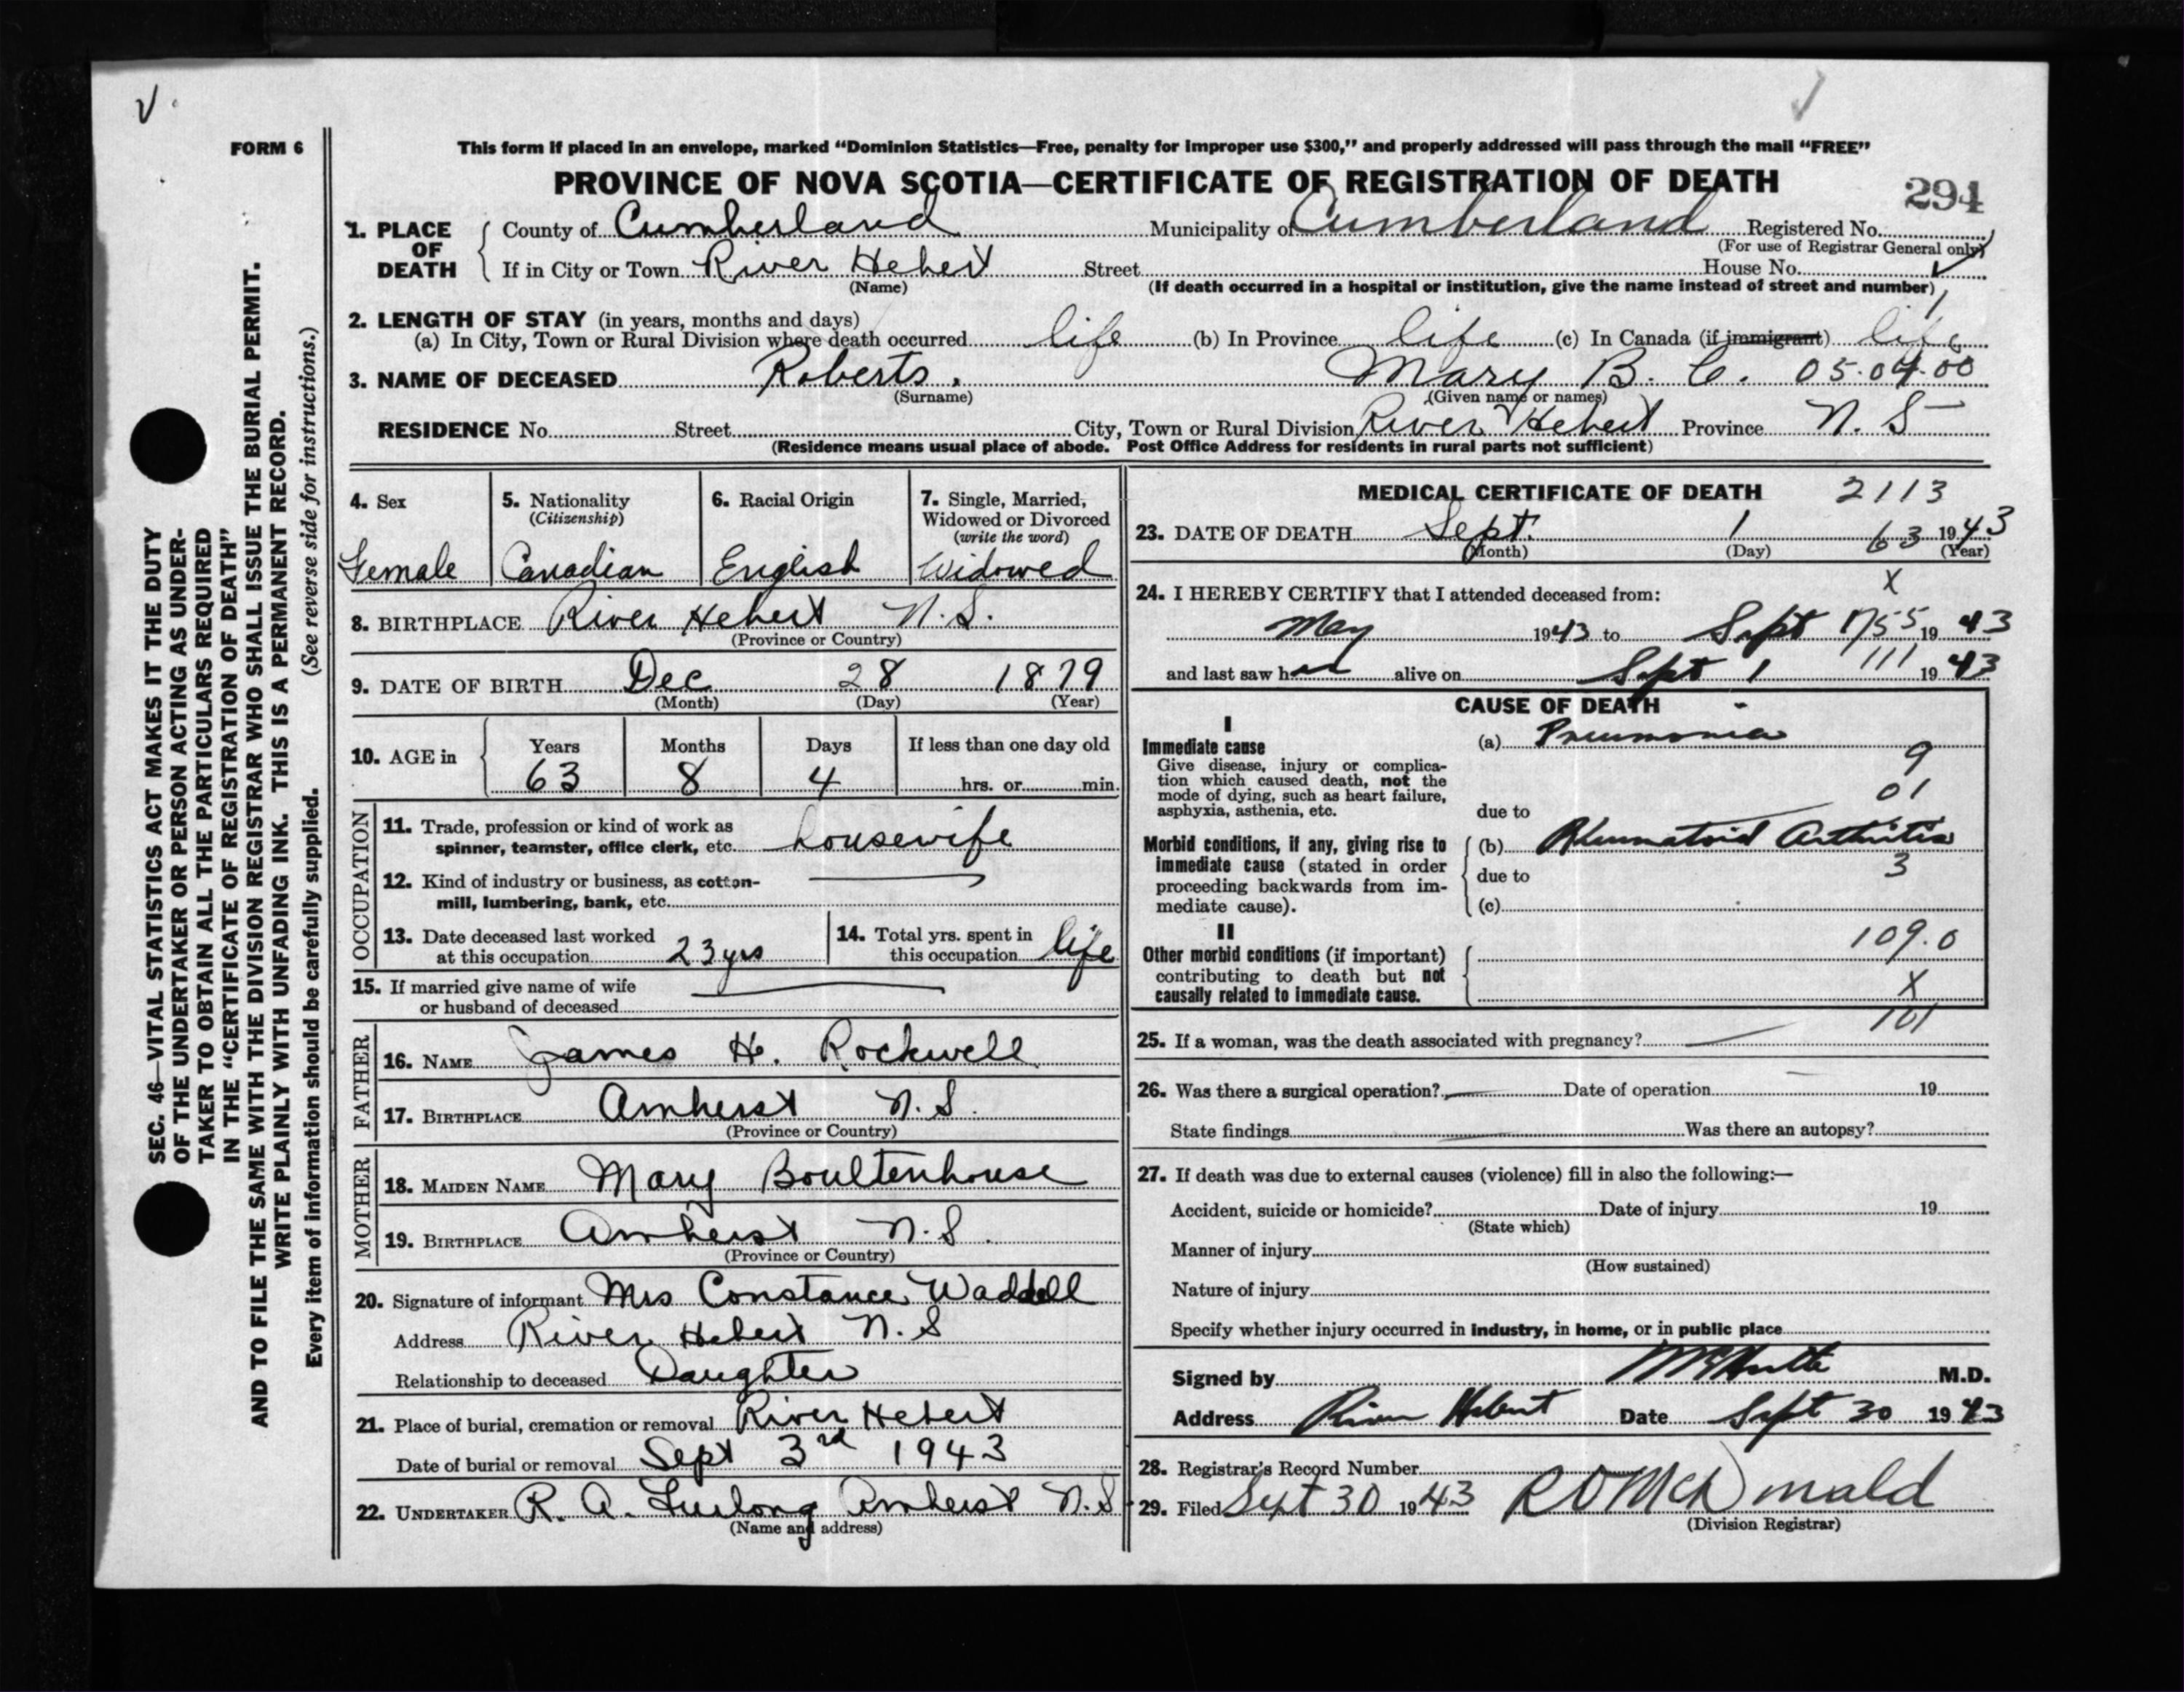 FORM 6
This form if placed in an envelope, marked “Dominion Statistics—Free, penalty for improper use $300,” and properly addressed will pass through the mail “FREE”
PROVINCE OF NOVA SCOTIA—CERTIFICATE OF REGISTRATION OF DEATH
294
1. PLACE OF DEATH
County of Cumberland Municipality of Cumberland Registered No.
(For use of Registrar General only)
If in City or Town River Hebert Street House No.
(Name) (If death occurred in a hospital or institution, give the name instead of street and number)
2. LENGTH OF STAY (in years, months and days)
(a) In City, Town or Rural Division where death occurred life (b) In Province life (c) In Canada (if immigrant) life
3. NAME OF DECEASED Roberts, Mary B. C. 05.04.00
(Surname) (Given name or names)
RESIDENCE No. Street City, Town or Rural Division River Hebert Province N. S
(Residence means usual place of abode. Post Office Address for residents in rural parts not sufficient)
4. Sex
Female
5. Nationality
(Citizenship)
Canadian
6. Racial Origin
English
7. Single, Married,
Widowed or Divorced
(write the word)
Widowed
8. BIRTHPLACE River Hebert N. S.
(Province or Country)
9. DATE OF BIRTH Dec 28 1879
(Month) (Day) (Year)
10. AGE in
Years Months Days If less than one day old
63 8 4 hrs. or min.
OCCUPATION
11. Trade, profession or kind of work as
spinner, teamster, office clerk, etc. housewife
12. Kind of industry or business, as cotton-
mill, lumbering, bank, etc.
13. Date deceased last worked
at this occupation 23 yrs
14. Total yrs. spent in
this occupation life
15. If married give name of wife
or husband of deceased
FATHER
16. NAME James H. Rockwell
17. BIRTHPLACE Amherst N. S.
(Province or Country)
MOTHER
18. MAIDEN NAME Mary Boultenhouse
19. BIRTHPLACE Amherst N. S.
(Province or Country)
20. Signature of informant Mrs Constance Waddell
Address River Hebert N. S
Relationship to deceased Daughter
21. Place of burial, cremation or removal River Hebert
Date of burial or removal Sept 3rd 1943
22. UNDERTAKER R. A. Furlong Amherst N. S
(Name and address)
MEDICAL CERTIFICATE OF DEATH 2113
23. DATE OF DEATH Sept. 1 63 1943
(Month) (Day) (Year)
X
24. I HEREBY CERTIFY that I attended deceased from:
May 1943 to Sept 1 1943
and last saw her alive on Sept 1 111 1943
CAUSE OF DEATH
I
Immediate cause
Give disease, injury or complica-
tion which caused death, not the
mode of dying, such as heart failure,
asphyxia, asthenia, etc.
(a) Pneumonia
9
01
due to
Morbid conditions, if any, giving rise to
immediate cause (stated in order
proceeding backwards from im-
mediate cause).
(b) Rheumatoid Arthritis
3
due to
(c)
II
Other morbid conditions (if important)
contributing to death but not
causally related to immediate cause.
109.0
X
101
25. If a woman, was the death associated with pregnancy?
26. Was there a surgical operation? Date of operation 19
State findings Was there an autopsy?
27. If death was due to external causes (violence) fill in also the following:—
Accident, suicide or homicide? Date of injury 19
(State which)
Manner of injury
(How sustained)
Nature of injury
Specify whether injury occurred in industry, in home, or in public place
Signed by M.D.
Address River Hebert Date Sept 30 1943
28. Registrar's Record Number
29. Filed Sept 30 1943 R D McDonald
(Division Registrar)
SEC. 46—VITAL STATISTICS ACT MAKES IT THE DUTY
OF THE UNDERTAKER OR PERSON ACTING AS UNDER-
TAKER TO OBTAIN ALL THE PARTICULARS REQUIRED
IN THE “CERTIFICATE OF REGISTRATION OF DEATH”
AND TO FILE THE SAME WITH THE DIVISION REGISTRAR WHO SHALL ISSUE THE BURIAL PERMIT.
WRITE PLAINLY WITH UNFADING INK. THIS IS A PERMANENT RECORD.
Every item of information should be carefully supplied. (See reverse side for instructions.)